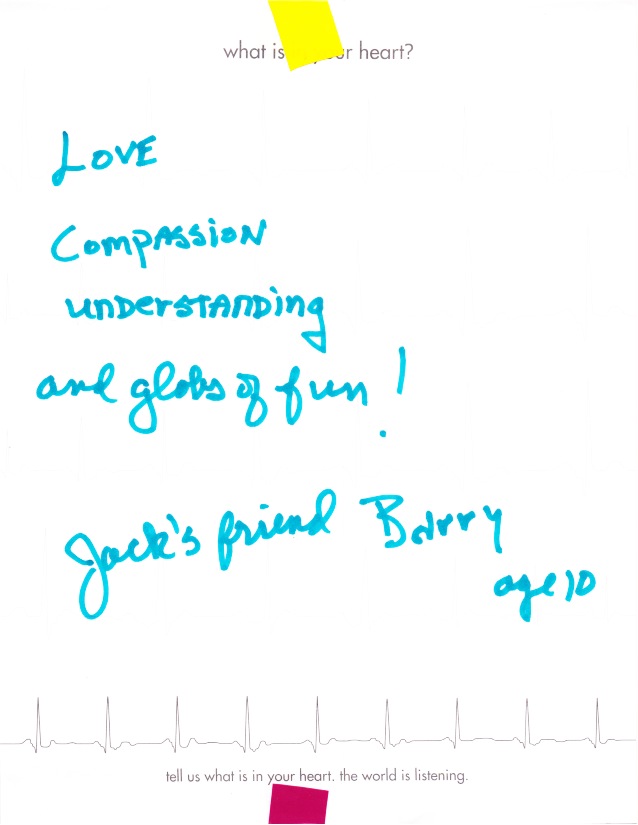 what is your heart?
LOVE
Compassion
understanding
and globs of fun!
Jack's friend Barry
age 10
tell us what is in your heart. the world is listening.